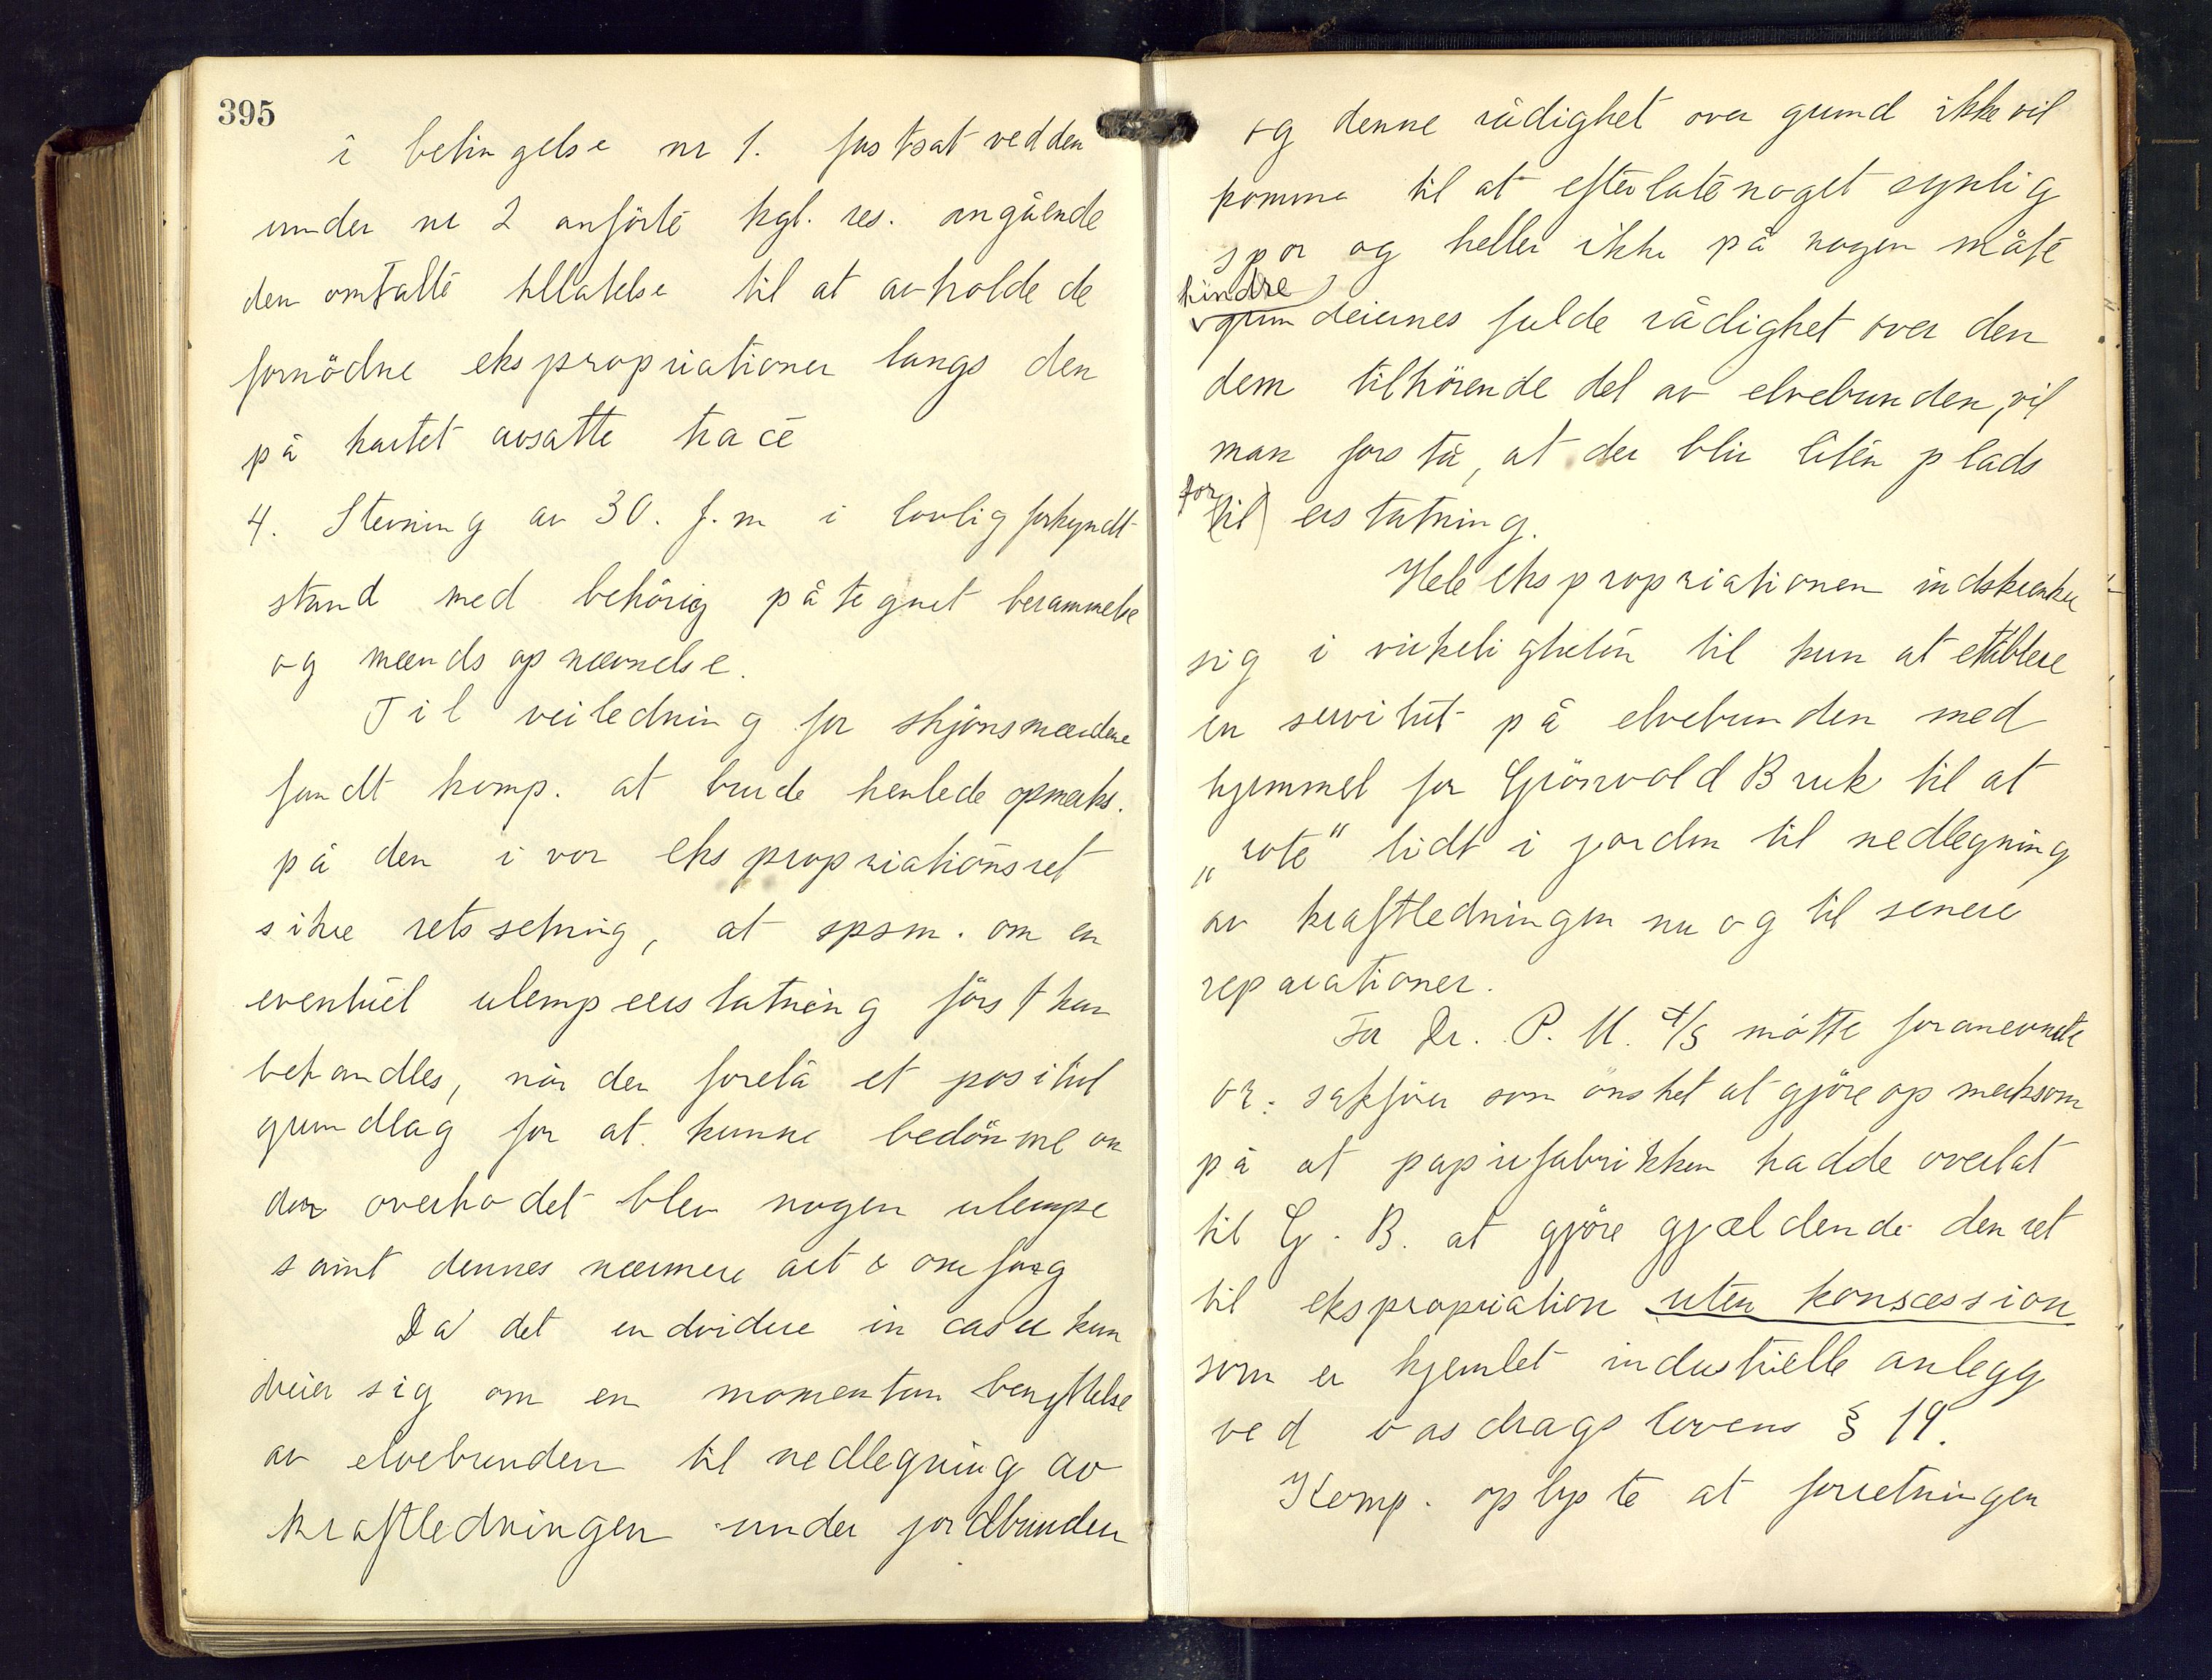 395
i betingelse nr 1. fastsat ved den
under nr 2 anförte kgl. res. angående
den omtalte tillatelse til at avholde de
fornödne ekspropriationer langs den
på kartet avsatte tracé
4. Stevning av 30. f.m i lovlig forkyndt
stand med behörig påtegnet berammelse
og mænds opnævnelse.
Til veiledning for skjönsmændene
fandt komp. at burde henlede opmerks.
på den i vor ekspropriationsret
sikre retssetning, at spsm. om en
eventuel ulempeerstatning först kan
behandles, når der forelå et positivt
grundlag for at kunne bedömme om
der overhodet blev nogen ulempe
samt dennes nærmere art & omfang
Da det endvidere in casu kun
dreier sig om en momentan benyttelse
av elvebunden til nedlegning av
kraftledningen under jordbunden
og denne rådighet over grund ikke vil
komme til at efterlate noget synlig
spor og heller ikke på nogen måte
hindre
grundeiernes fulde rådighet over den
dem tilhörende del av elvebunden, vil
man forstå, at der blir liten plads
for
(til) erstatning.
Hele ekspropriationen indskrenker
sig i virkeligheten til kun at etablere
en servitut på elvebunden med
hjemmel for Grönvold Bruk til at
„rote" lidt i jorden til nedlegning
av kraftledningen nu og til senere
reparationer.
For Dr. P. M. A/S mötte forannevnte
or: sakförer som önsket at gjöre opmerksom
på at papirfabrikken hadde overlat
til G. B. at gjöre gjældende den ret
til ekspropriation uten konsession
som er hjemlet industrielle anlegg
ved vasdragslovens § 19.
Komp. oplyste at forretningen